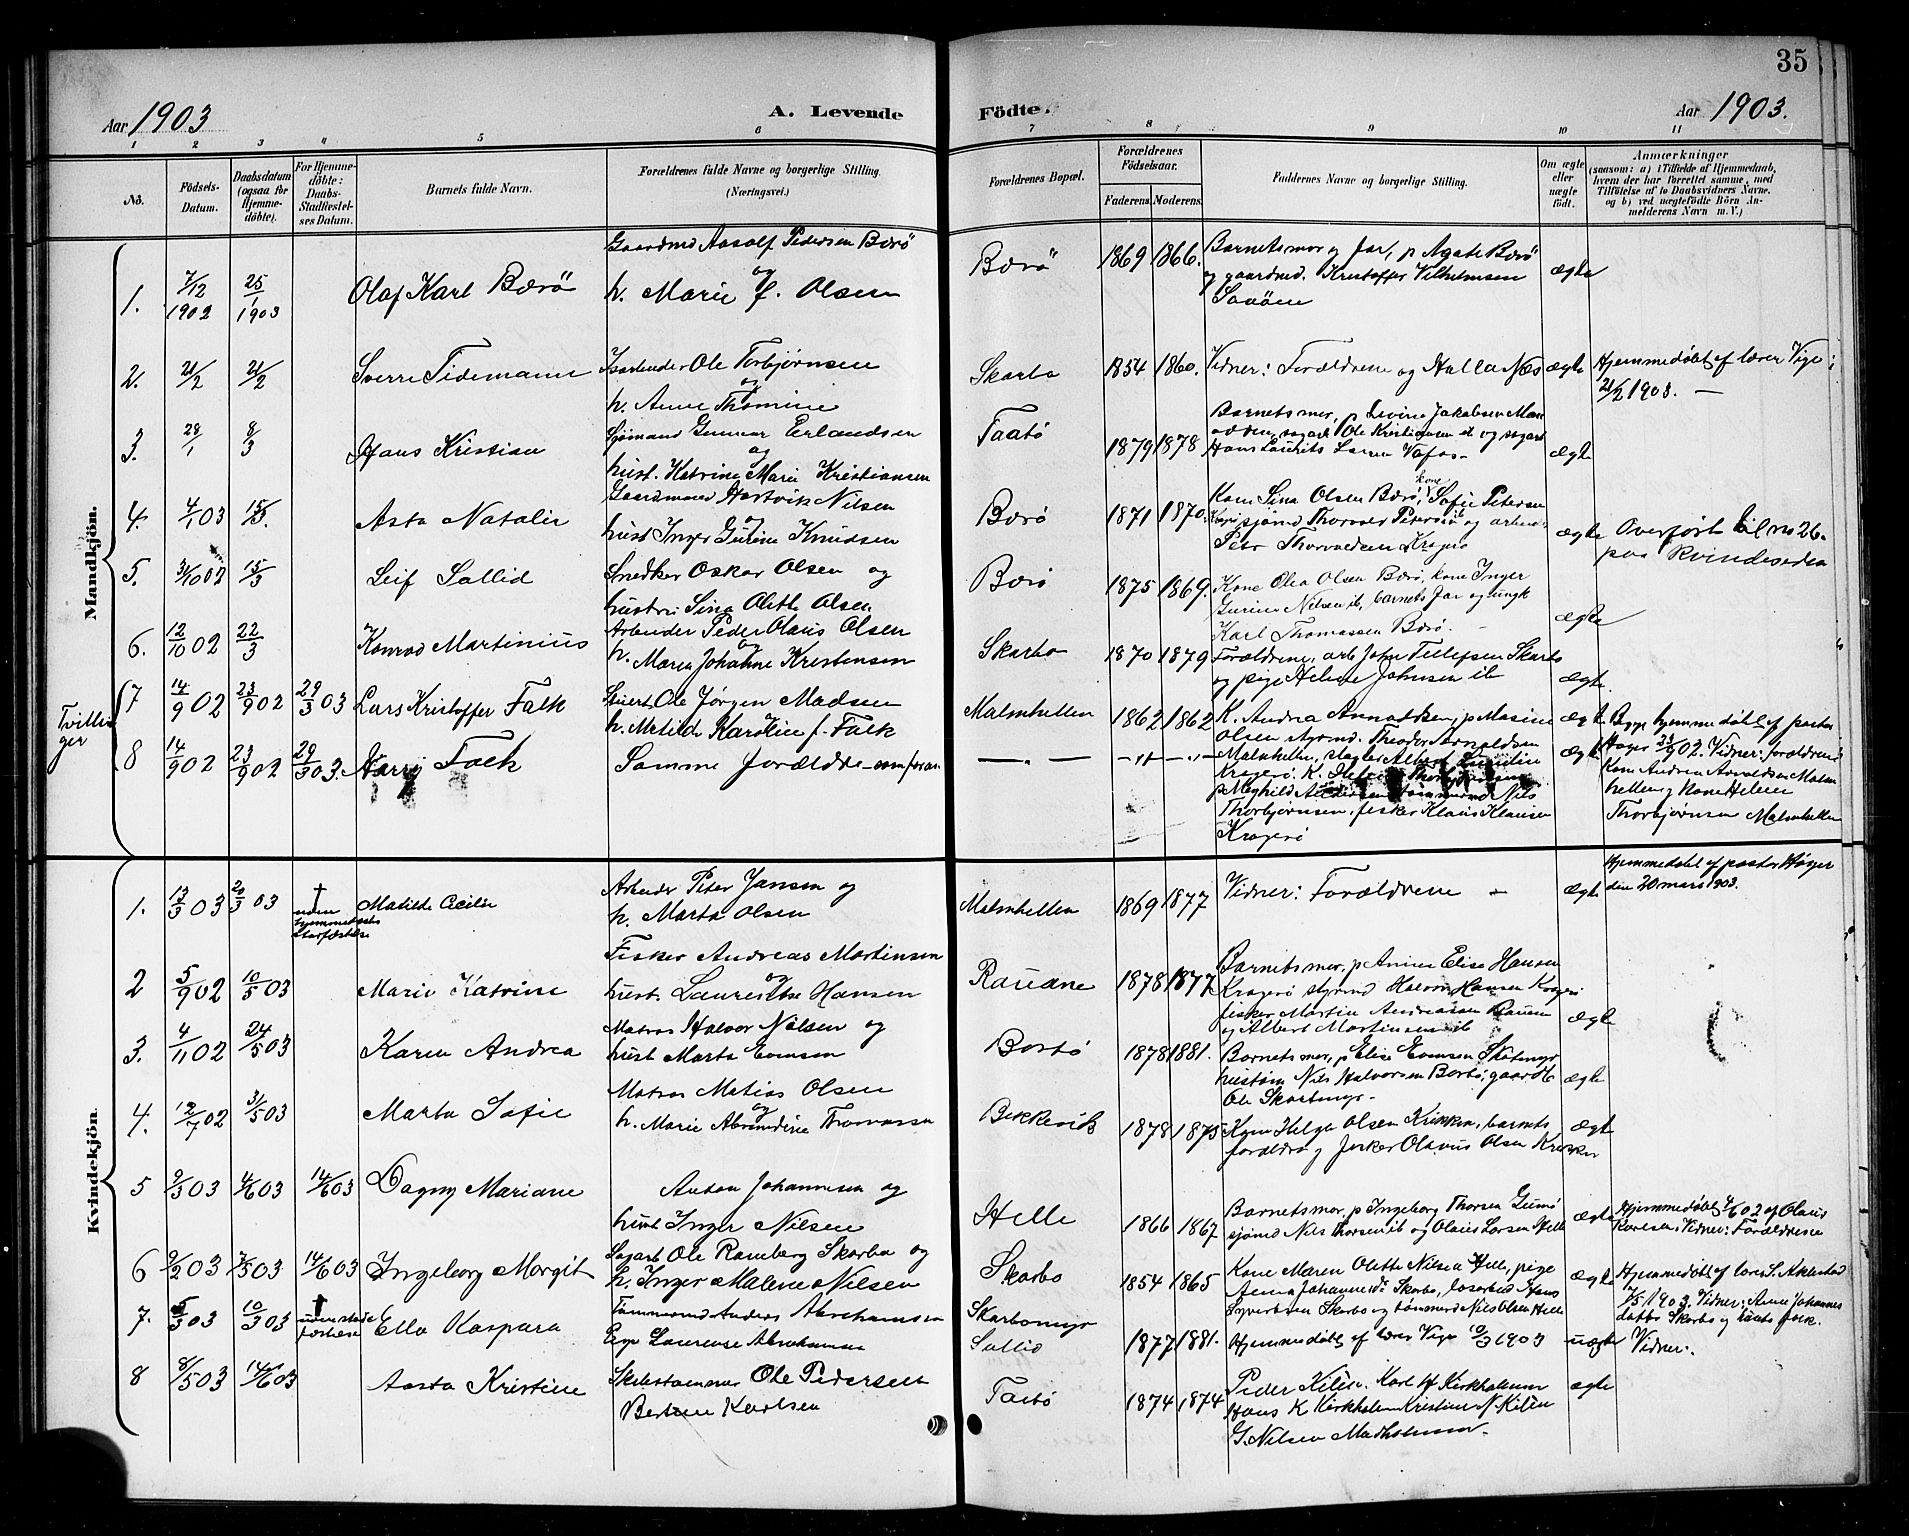 35
Aar 1903
A. Levende
Födte.
Aar 1903.
1 2 3 4 5 6 7 8 9 10 11
No.
Födsels-Datum.
Daabsdatum (ogsaa for Hjemme-döbte).
For Hjemme-döbte: Daabs-Stadfæstel-ses Datum.
Barnets fulde Navn.
Forældrenes fulde Navne og borgerlige Stilling. (Næringsvei.)
Forældrenes Bopæl.
Forældrenes Födselsaar.
Faderens Moderens
Faddernes Navne og borgerlige Stilling.
Om ægte eller uægte födt.
Anmærkninger
(saasom: a) i Tilfælde af Hjemmedaab, hvem der har forrettet samme, med Tilföielse af to Daabsvidners Navne, og b) ved uægtefödte Börn An-melderens Navn m. V.)
Mandkjön.
1. 7/12 1902 25/1 1903 Olaf Karl Bærö
Gaardmd Aasolf Pedersen Bærö
og
h. Marie f. Olsen
Bærö 1869 1866.
Barnets mor og far, p Agate Bærö
og gaardmd. Kristoffer Vilhelmsen
ægte
2. 21/2 21/2 Sverre Tidemann
Ole Torbjørnsen
og
h. Anne Thomine
Skarbo 1854 1860.
Vidner: Forældrene og Halla Næs ægte
Hjemmedøbt af lærer Vige
21/2 1903. —
3. 28/1 8/3 Hans Kristian
Sjømand Gunnar Erlandsen
og
hust. Katrine Marie Kristiansen
Taatö 1879 1878
ægte
4. 4/1 03 15/3. Asta Natalie
Gaardmand Hartvik Nilsen
og
hust Inger Gurine Knudsen
Bærö 1871 1870.
Kone Sina Olsen Bærö, kone Sofie Petersen
ægte
Overført til no 26.
paa Kvindesiden
5. 31/10 02 15/3 Leif Sallid
Snedker Oskar Olsen og
hustru Sina Olette Olsen
Bærö 1875 1869.
Kone Olea Olsen Bærö, kone Inger
Gurine Nilsen ib, barnets far og ungk
Karl Thomassen Bærö.
ægte
6. 12/10 02 22/3 Konrad Martinius
Arbeider Peder Olaus Olsen
og
h. Maren Johanne Kristensen
Skarbo 1870 1879
Forældrene, arb John Tellefsen Skarbo
og pige Helene Johnsen ib
ægte
Tvillin ger
7 14/9 02 23/9 02 29/3 03 Lars Kristoffer Falk
Ole Jørgen Madsen
h. Matilde Karoline f. Falk
Malmhellen 1862 1862
8 14/9 02 23/9 02 29/3 03. Harry Falk
Samme forældre som foran
ægte
Thorbjørnsen, fisker Klaus Klausen
Kragerö
Begge hjemmedøbt af pastor
Høyer 23/9 02. Vidner: forældrene
Kone Andrea Arnoldsen Malm
hellen og Kone Helene
Thorbjørnsen Malmhellen
Kvindekjön.
1. 13/3 03 20/3 03 † uden hjemmedaabs stadfæstelse Matilde Cecilie
Arbeider Peter Jansen og
h. Marta Olsen
Malmhellen 1869 1877
Vidner: Forældrene — ægte
Hjemmedøbt af pastor Høyer
den 20 mars 1903.
2 5/9 02 10/5 03 Marie Katrine
Fisker Andreas Martinsen
og
hust. Laurentse Hansen
Rauane 1878 1877
Barnets mor, p Anne Elise Hansen
Kragerö styrmd Halvor Hansen Kragerö
fisker Martin Andreassen Rauane
og Albert Martinsen ib
ægte
3. 4/11 02 24/5 03 Karen Andrea
Matros Halvor Nilsen og
hust Marta Evensen
Bortö 1878 1881.
Barnets mor, p Elise Evensen Skarbmyr
husmn Nils Halvorsen Bortö, gaard
Ole Skarbmyr.
ægte
4. 12/7 02 31/5 03 Marta Sofie
Matros Matias Olsen
og
h. Marie Abramdine
Bekkevik 1878 1875
Kone Helga Olsen Krikken, barnets
forældre og fisker Olavus Olsen Krikken
ægte
5 9/3 03 4/6 03 14/6 03 Dagny Mariane
Anton Johannesen og
hust Inger Nilsen
Helle 1866 1867
Barnets mor, p Ingeborg Thorsen Gumö
sjømd Nils Thorsen ib og Olaus Larsen Helle
ægte
Hjemmedøbt 4/6 02 af Olaus
Vidner: Forældrene
6 9/2 03 7/5 03 14/6 03 Ingeborg Margit
Sagarb Ole Ramberg Skarbo og
h. Inger Malene Nilsen
Skarbo 1854 1865
Kone Maren Olette Nilsen Helle, pige
Anna Johannesdt Skarbo, løsarbeid Hans
Syvertsen Skarbo og tømmermd Nils Olsen Helle
ægte
Hjemmedøbt af lærer S. Aklestad
7/5 1903. Vidner: Anne Johannes
datter Skarbo og
7. 5/3 03 10/3 03 † uden stad fæstelse Ella Kaspara
Tømmermd Anders Abrahamsen
Laurense Abrahamsen
Skarbomyr
Sallid 1877 1881.
Hjemmedøbt af lærer Vige 10/3 1903 uægte Vidner:.
8 8/5 03 14/6 03 Aasta Kristine
Ole Pedersen
Karlsen
Taatö 1874 1874
Peder Kilen. Karl H Kirkholmen
Hans K Kirkholmen Kristian N. Kilen
G. Nilsen
ægte